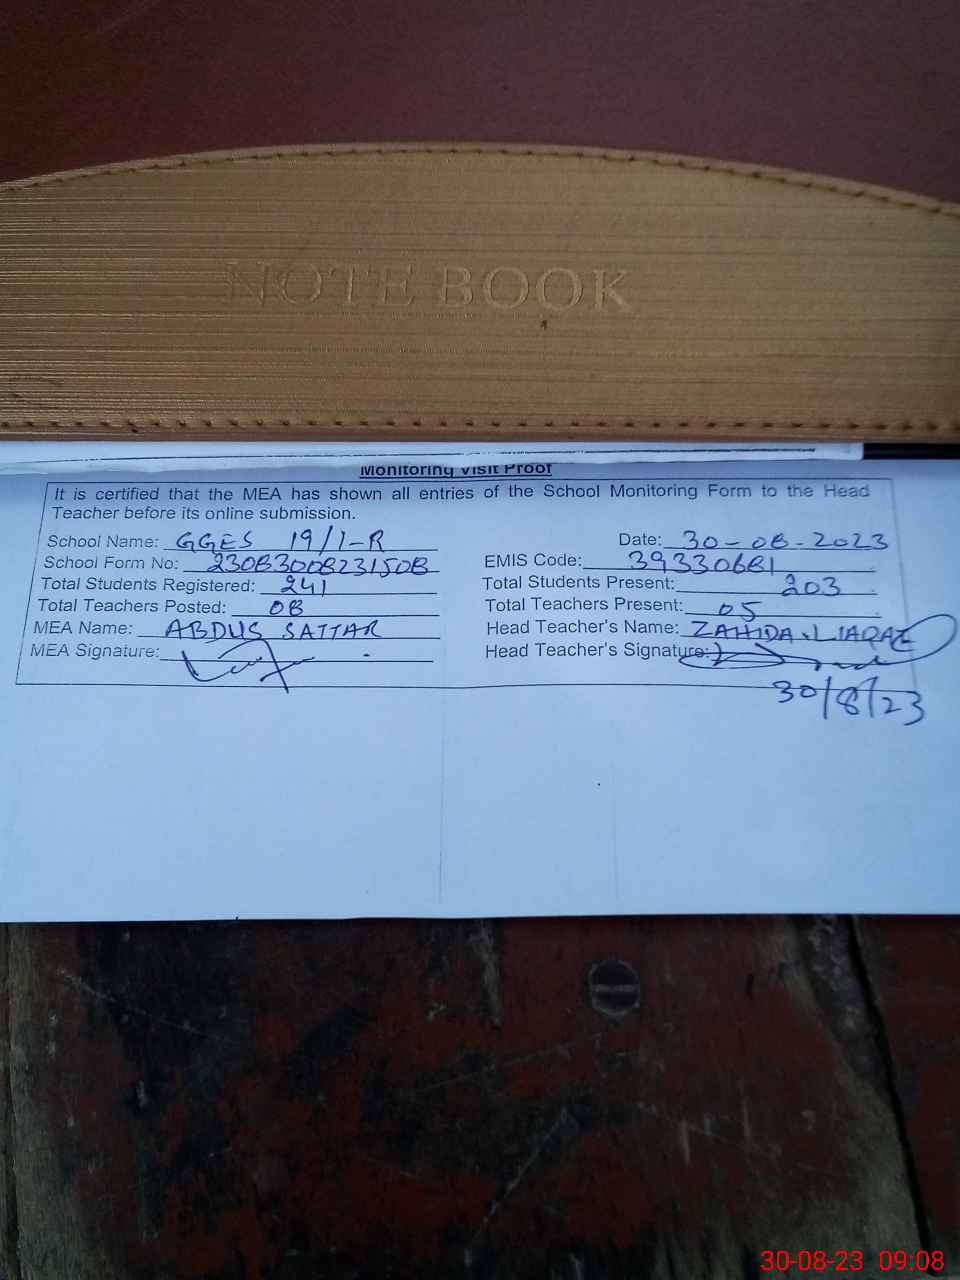 NOTE BOOK
Monitoring Visit Proof
It is certified that the MEA has shown all entries of the School Monitoring Form to the Head
Teacher before its online submission.
School Name: GGES 19/1-R Date: 30-08-2023
School Form No: 23083008231508 EMIS Code: 39330681
Total Students Registered: 241 Total Students Present: 203
Total Teachers Posted: 08 Total Teachers Present: 05
MEA Name: ABDUS SATTAR Head Teacher's Name: ZAHIDA LIAQAT
MEA Signature: Head Teacher's Signature:
30/8/23
30-08-23 09:08